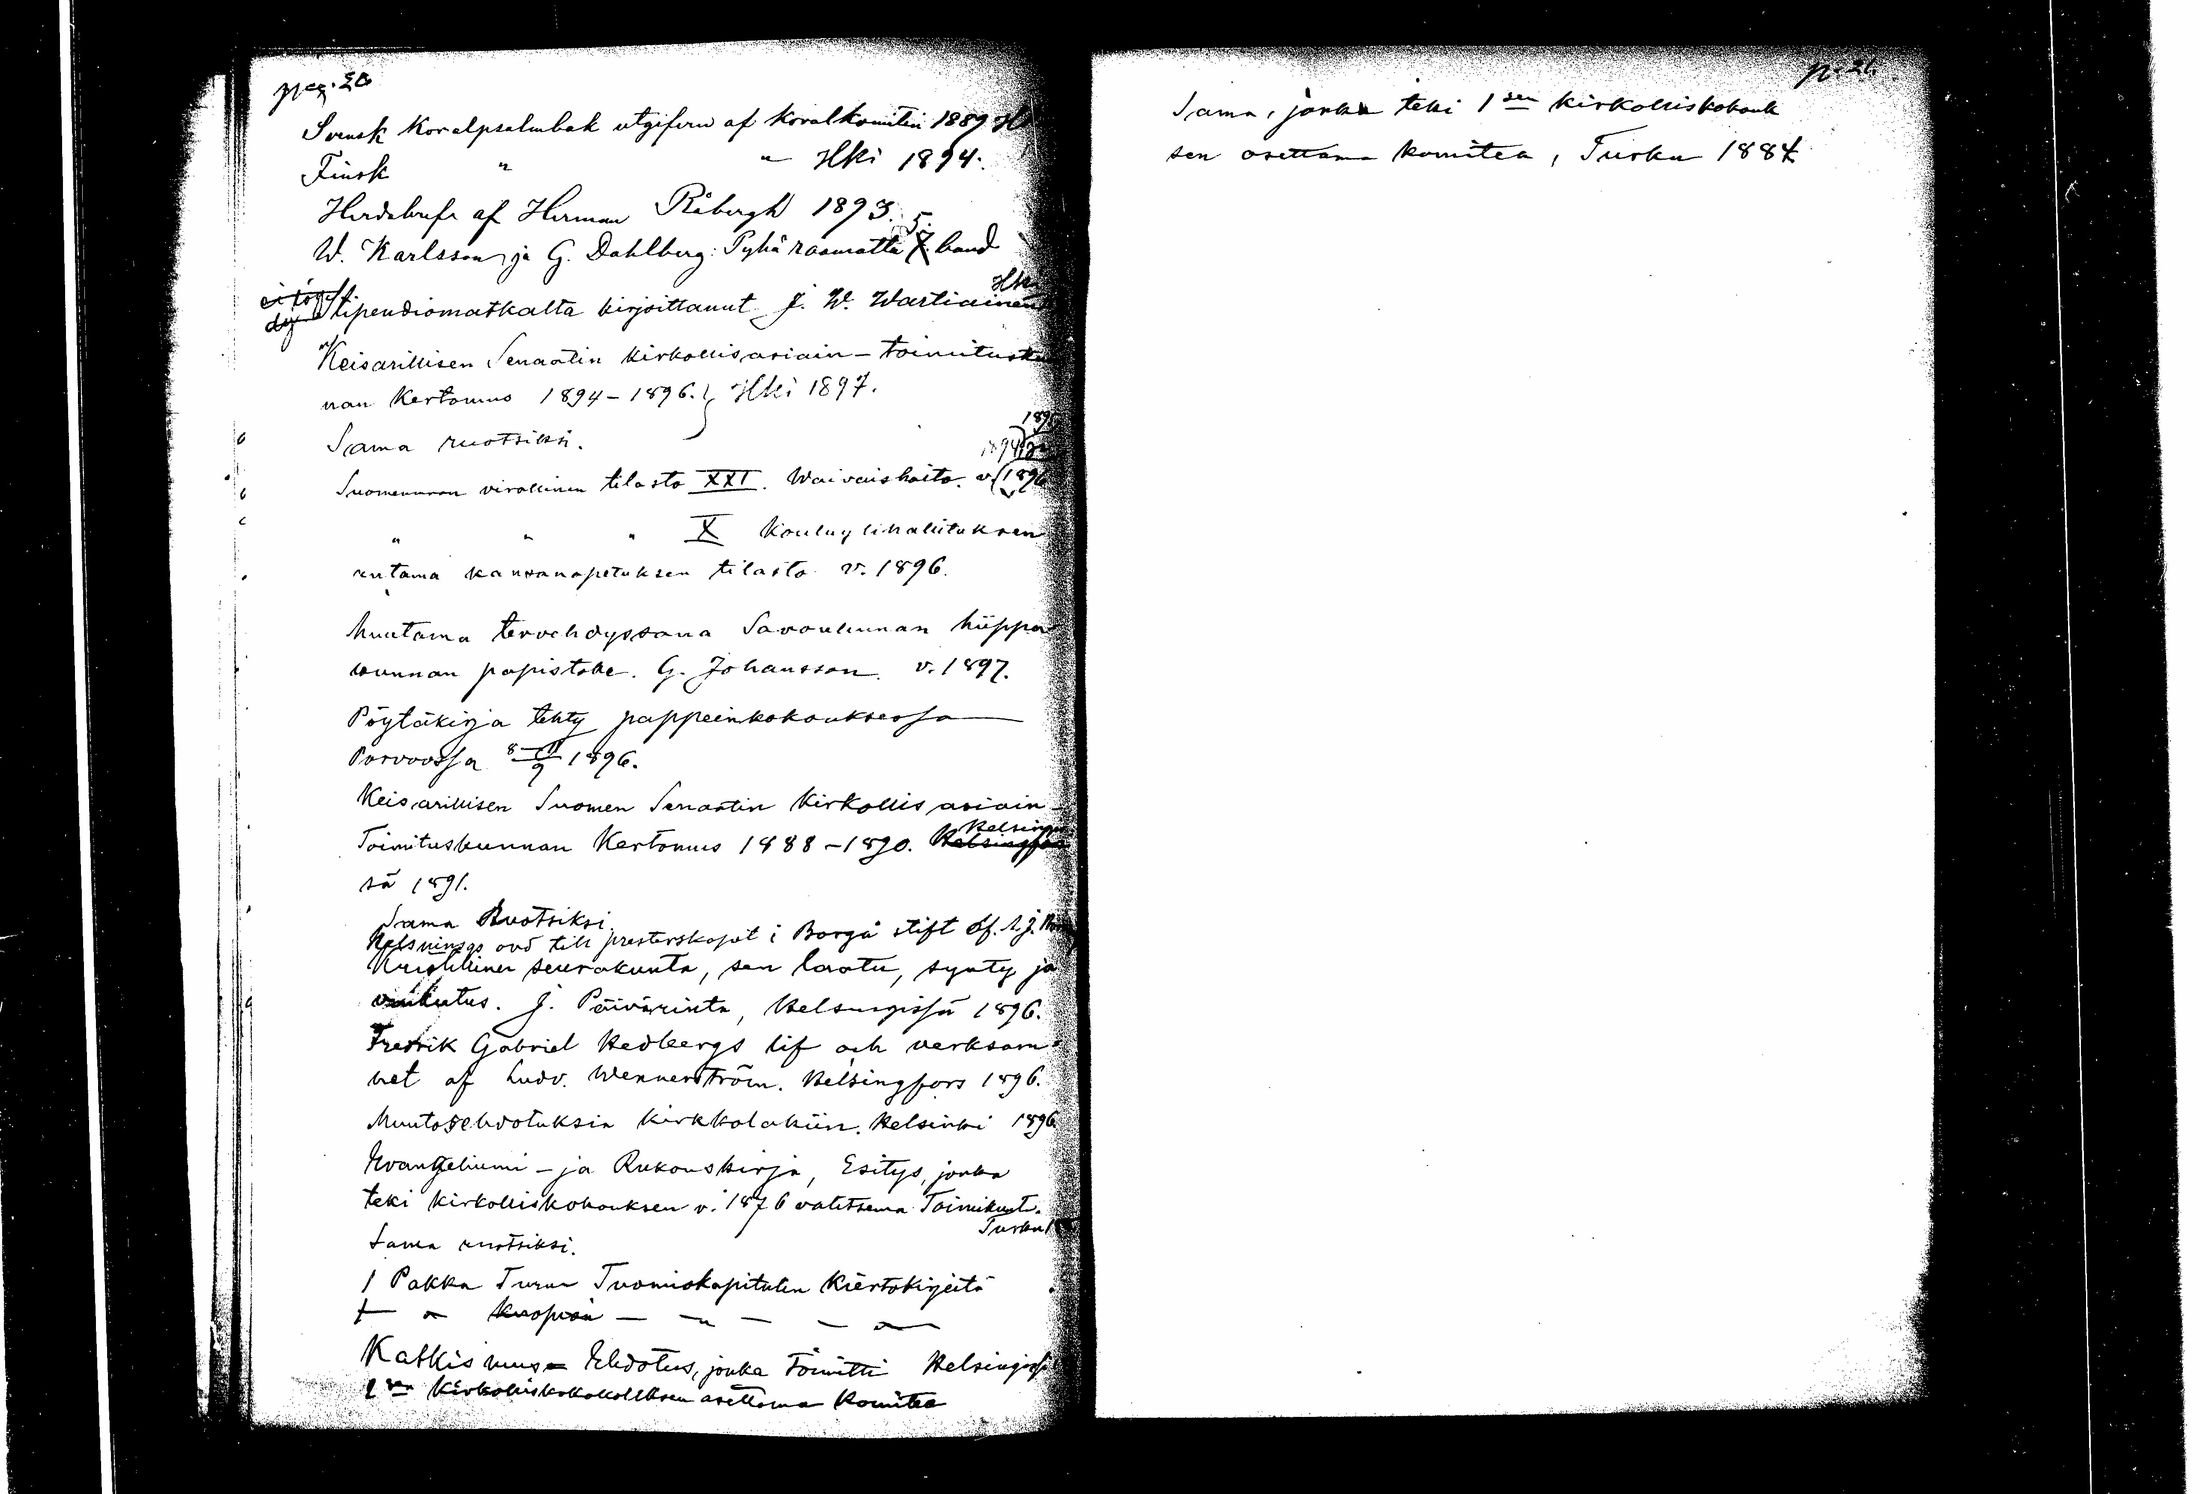 pag. 20
Svensk Koralpsalmbok utgifven af Koralkomiten 1889 H
Finsk " " Hki 1894.
Herdabref af Herman Råbergh 1893.
W. Karlsson ja G. Dahlberg: Pyhä raamattu 5. band
Hki
Stipendiomatkalta kirjoittanut J. W. Wartiainen
Keisarillisen Senaatin kirkollisasiain-toimitusku
nan Kertomus 1894-1896. } Hki 1897.
Sama ruotsiksi.
1895
1894 ja
Suomenmaan virallinen tilasto XXI. Waivaishoito. v. 1896
" " " X Kouluylihallituksen
antama kansanopetuksen tilasto v. 1896.
Muutama tervehdyssana Savonlinnan hiippa
kunnan papistolle. G. Johansson. v. 1897.
Pöytäkirja tehty pappeinkokouksessa
Porvoossa 8-11/9 1896.
Keisarillisen Suomen Senaatin Kirkollisasiain-
Toimituskunnan Kertomus 1888-1890. Helsingfors Helsingis
sä 1891.
Sama Ruotsiksi.
Helsnings ord till presterskapet i Borgå stift af A. J.
Kristillinen seurakunta, sen laatu, synty ja
vaikutus. J. Päivärinta, Helsingissä 1896.
Fredrik Gabriel Hedbergs lif och verksam-
het af Ludv. Wennerström. Helsingfors 1896.
Muutosehdotuksia kirkkolakiin. Helsinki 1896
Evangeliumi- ja Rukouskirja, Esitys, jonka
teki kirkolliskokouksen v. 1876 valitsema Toimikunta.
Turku 18
Sama ruotsiksi.
1 Pakka Turun Tuomiokapitulin Kiertokirjeitä
1 " Kuopion - " - - "
Katkismus- Ehdotus, jonka toimitti Helsingissä
1sen Kirkolliskokouksen asettama Komitea
p. 21.
Sama, jonka teki 1sen kirkolliskokouk
sen asettama komitea, Turku 1884